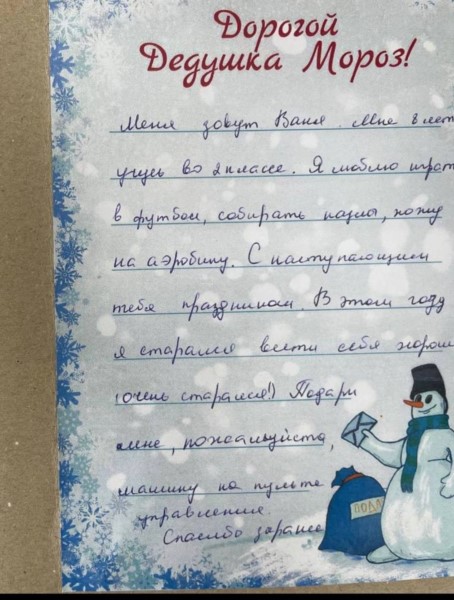 Дорогой
Дедушка Мороз!
Меня зовут Ваня. Мне 8 лет
учусь во 2 классе. Я люблю играт
в футбол, собирать пазлы, хожу
на аэробику. С наступающим
тебя праздником. В этом году
я старался вести себя хорош
(очень старался!) Подари
мне, пожалуйста,
машину на пульте
управления.
Спасибо заранее
ПОДА